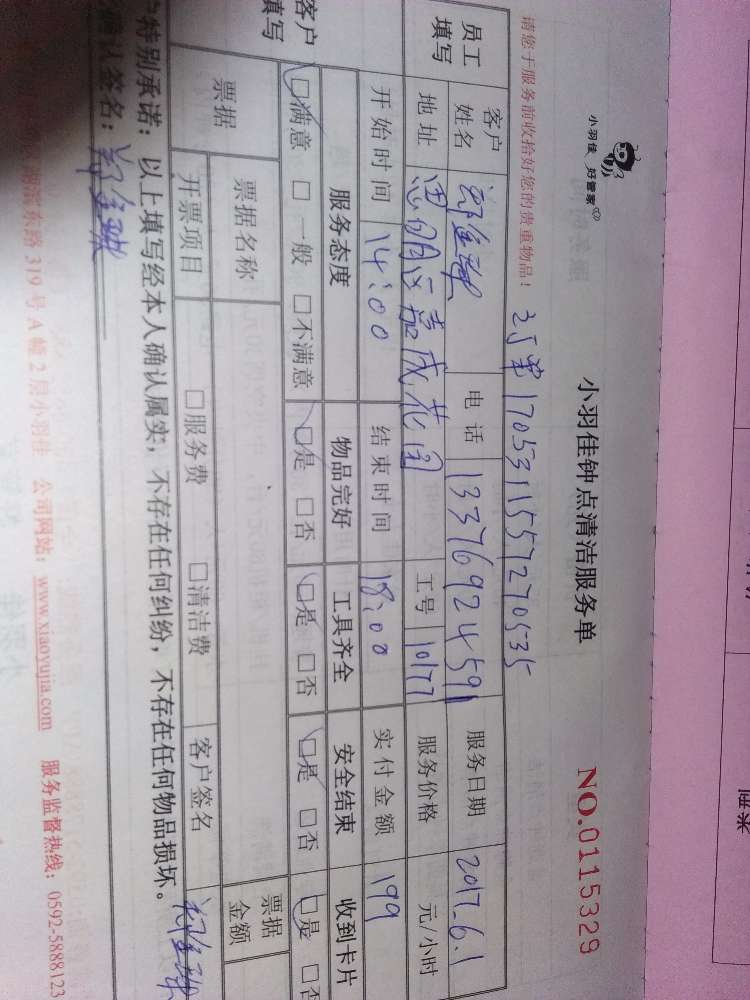 小羽佳 好管家
小羽佳钟点清洁服务单
NO.0115329
请您于服务前收拾好您的贵重物品!
170531155727053​5
员工填写
客户姓名 电话 13376924591 服务日期 2017.6.1
地址 思明区嘉成花园 工号 10177 服务价格 元/小时
开始时间 14:00 结束时间 18:00 实付金额 199
客户填写
服务态度 物品完好 工具齐全 安全结束 收到卡片
□满意 □一般 □不满意 □是 □否 □是 □否 □是 □否 □是 □否
票据 票据名称 票据金额
开票项目 □服务费 □清洁费 客户签名
特别承诺:以上填写经本人确认属实,不存在任何纠纷,不存在任何物品损坏。
确认签名:
东路319号A幢2层小羽佳 公司网站:www.xiaoyujia.com 服务监督热线:0592-5888123